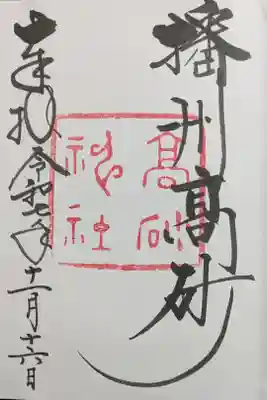 播州高砂
高砂
神社
奉拝 令和七年十一月十六日